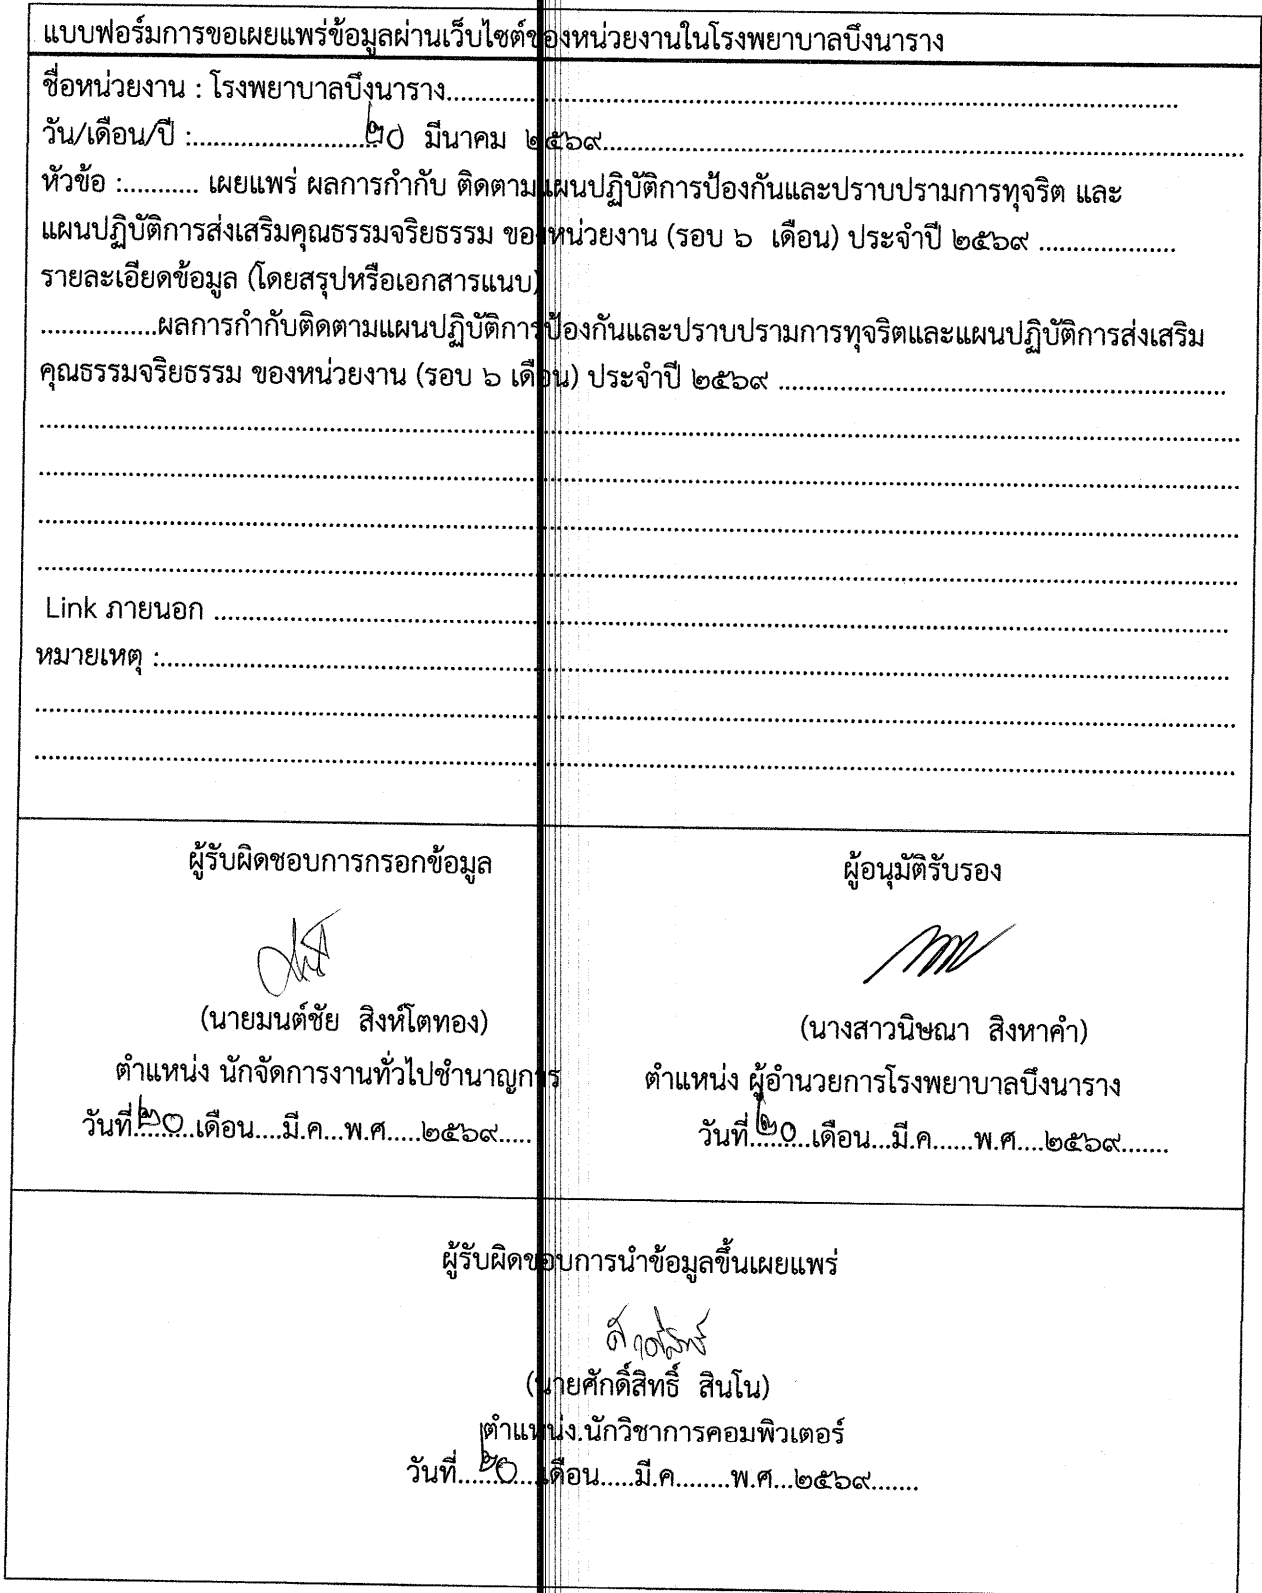 แบบฟอร์มการขอเผยแพร่ข้อมูลผ่านเว็บไซต์ของหน่วยงานในโรงพยาบาลบึงนาราง
ชื่อหน่วยงาน : โรงพยาบาลบึงนาราง....................
วัน/เดือน/ปี :....................๒๐ มีนาคม ๒๕๖๙....................
หัวข้อ :........... เผยแพร่ ผลการกำกับ ติดตามแผนปฏิบัติการป้องกันและปราบปรามการทุจริต และ
แผนปฏิบัติการส่งเสริมคุณธรรมจริยธรรม ของหน่วยงาน (รอบ ๖ เดือน) ประจำปี ๒๕๖๙ ....................
รายละเอียดข้อมูล (โดยสรุปหรือเอกสารแนบ)
.................ผลการกำกับติดตามแผนปฏิบัติการป้องกันและปราบปรามการทุจริตและแผนปฏิบัติการส่งเสริม
คุณธรรมจริยธรรม ของหน่วยงาน (รอบ ๖ เดือน) ประจำปี ๒๕๖๙ ....................
Link ภายนอก ....................
หมายเหตุ :....................
ผู้รับผิดชอบการกรอกข้อมูล
(นายมนต์ชัย สิงห์โตทอง)
ตำแหน่ง นักจัดการงานทั่วไปชำนาญการ
วันที่.๒๐...เดือน....มี.ค...พ.ศ.....๒๕๖๙.....
ผู้อนุมัติรับรอง
(นางสาวนิษณา สิงหาคำ)
ตำแหน่ง ผู้อำนวยการโรงพยาบาลบึงนาราง
วันที่.๒๐...เดือน...มี.ค......พ.ศ....๒๕๖๙.......
ผู้รับผิดชอบการนำข้อมูลขึ้นเผยแพร่
(นายศักดิ์สิทธิ์ สินโน)
ตำแหน่ง.นักวิชาการคอมพิวเตอร์
วันที่....๒๐...เดือน.....มี.ค........พ.ศ...๒๕๖๙.......